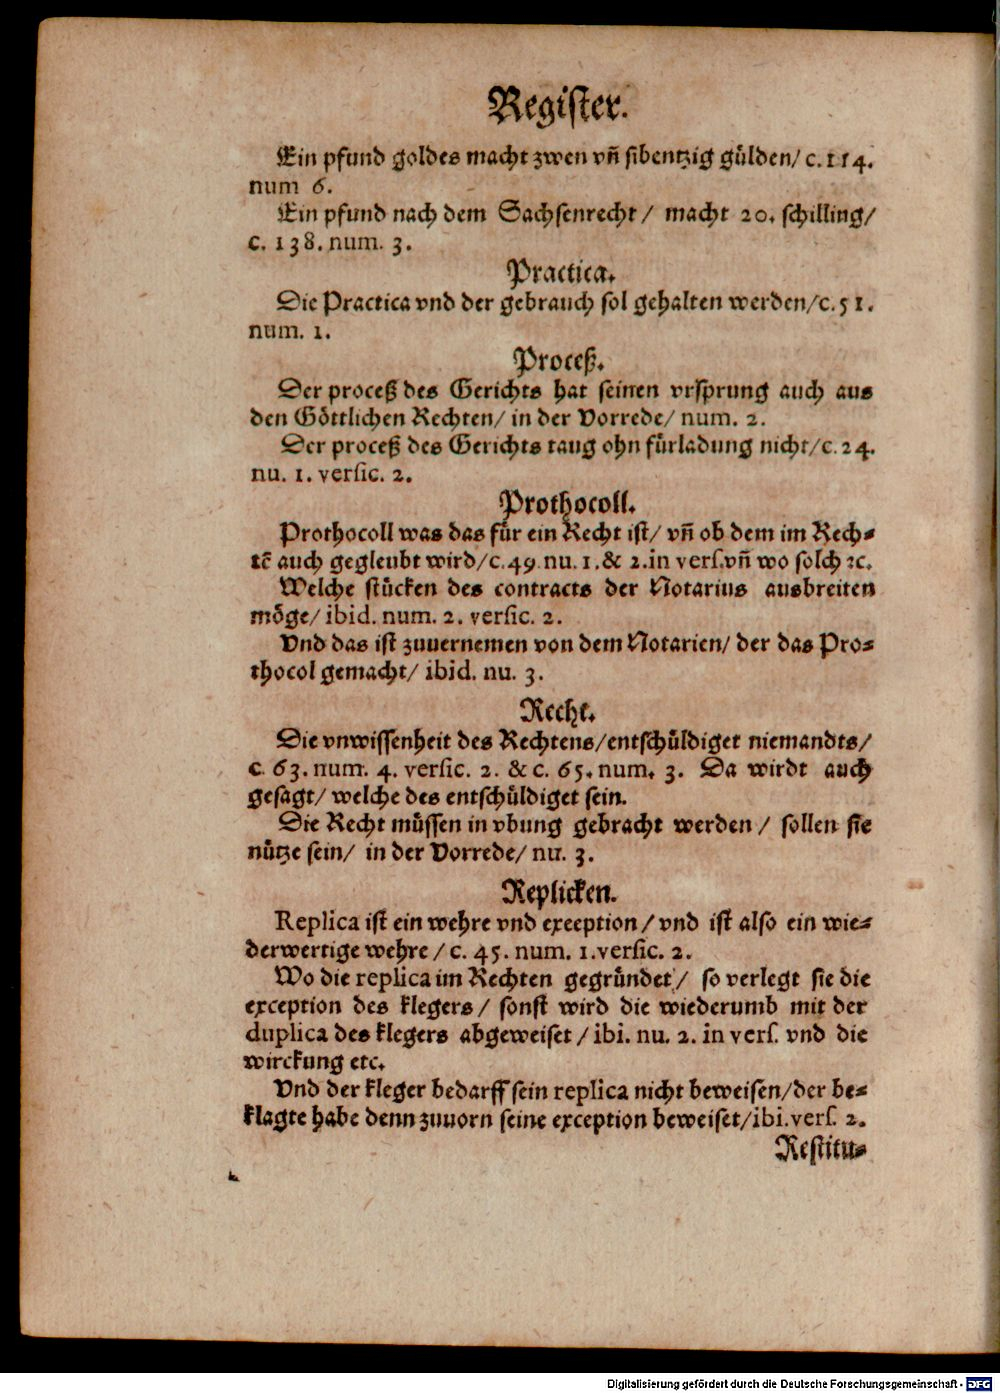 Register.
Ein pfund goldes macht zwen vñ sibentzig gülden/ c. 114.
num 6.
Ein pfund nach dem Sachsenrecht / macht 20. schilling/
c. 138. num. 3.
Practica.
Die Practica vnd der gebrauch sol gehalten werden/c. 51.
num. 1.
Proceß.
Der proceß des Gerichts hat seinen vrsprung auch aus
den Göttlichen Rechten/ in der Vorrede/ num. 2.
Der proceß des Gerichts taug ohn fürladung nicht/c. 24.
nu. 1. versic. 2.
Prothocoll.
Prothocoll was das für ein Recht ist/ vñ ob dem im Rech-
tē auch gegleubt wird/c.49 nu. 1. & 2.in vers.vñ wo solch ꝛc.
Welche stücken des contracts der Notarius ausbreiten
möge/ ibid. num. 2. versic. 2.
Vnd das ist zuuernemen von dem Notarien/ der das Pro-
thocol gemacht/ ibid. nu. 3.
Recht.
Die vnwissenheit des Rechtens/entschüldiget niemandts/
c. 63. num. 4. versic. 2. & c. 65. num. 3. Da wirdt auch
gesagt/ welche des entschüldiget sein.
Die Recht müssen in vbung gebracht werden / sollen sie
nütze sein/ in der Vorrede/ nu. 3.
Replicken.
Replica ist ein wehre vnd exeeption / vnd ist also ein wie-
derwertige wehre / c. 45. num. 1.versic. 2.
Wo die replica im Rechten gegründet / so verlegt sie die
exception des klegers / sonst wird die wiederumb mit der
duplica des klegers abgeweiset / ibi. nu. 2. in vers. vnd die
wirckung etc.
Vnd der kleger bedarff sein replica nicht beweisen/der be-
klagte habe denn zuuorn seine exception beweiset/ibi.vers. 2.
Restitu-
Digitalisierung gefördert durch die Deutsche Forschungsgemeinschaft - DFG